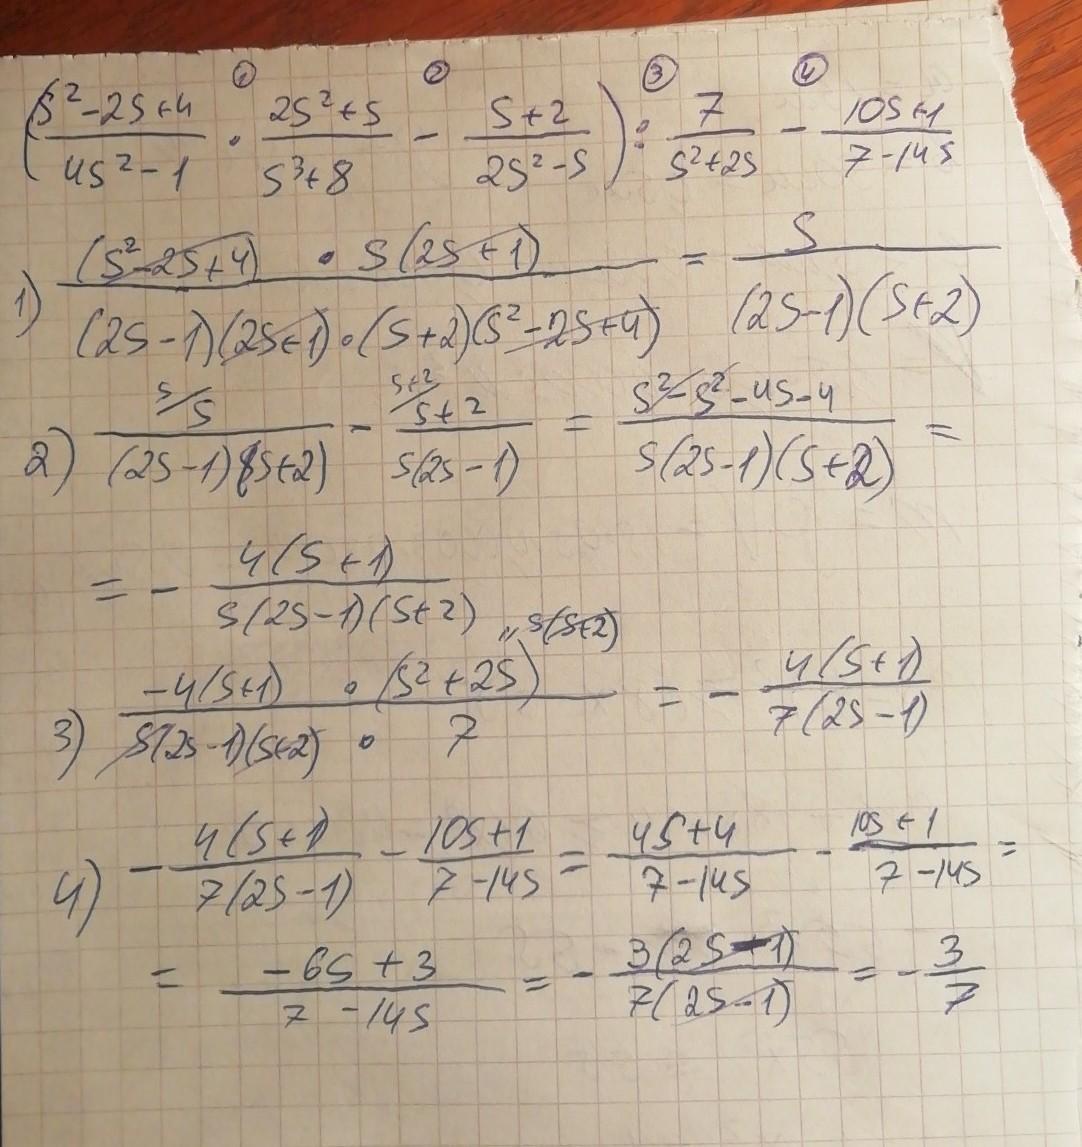 ① ② ③ ④
((s²-2s+4)/(4s²-1) · (2s²+s)/(s³+8) - (s+2)/(2s²-s)) : 7/(s²+2s) - (10s+1)/(7-14s)
1) ((s²-2s+4) · s(2s+1))/((2s-1)(2s+1)·(s+2)(s²-2s+4)) = s/((2s-1)(s+2))
2) s/ s/((2s-1)(s+2)) - s+2/ (s+2)/(s(2s-1)) = (s²-s²-4s-4)/(s(2s-1)(s+2)) =
= - 4(s+1)/(s(2s-1)(s+2))
" s(s+2)
3) (-4(s+1) · (s²+2s))/(s(2s-1)(s+2) · 7) = - 4(s+1)/(7(2s-1))
4) - 4(s+1)/(7(2s-1)) - (10s+1)/(7-14s) = (4s+4)/(7-14s) - (10s+1)/(7-14s) =
= (-6s+3)/(7-14s) = - 3(2s-1)/(7(2s-1)) = - 3/7